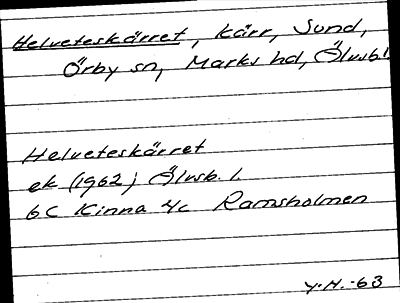 Helveteskärret, kärr, Sund,
Örby sn, Marks hd, Älvsb. l.
Helveteskärret
ek (1962) Älvsb. l.
6C Kinna 4c Ramsholmen
Y.H.-63